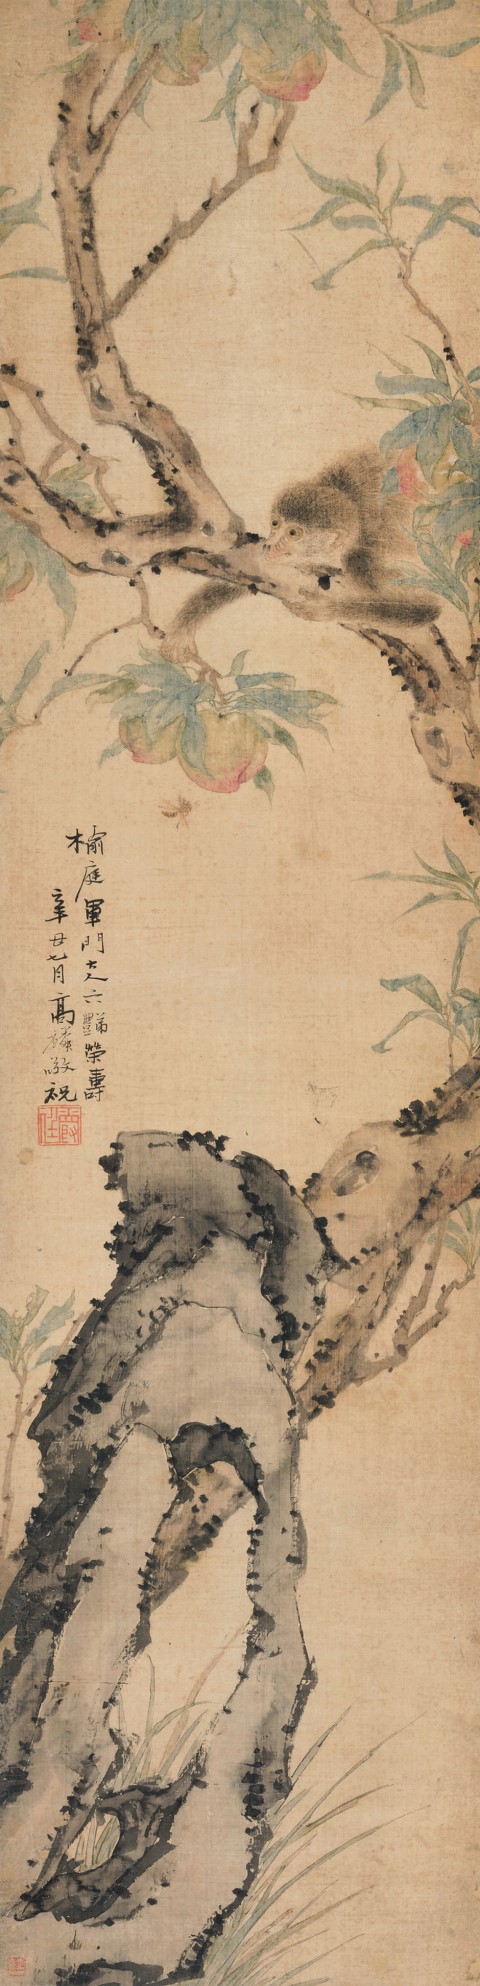 榆庭軍門大人六豒榮壽
辛丑七月高㷠敬祝